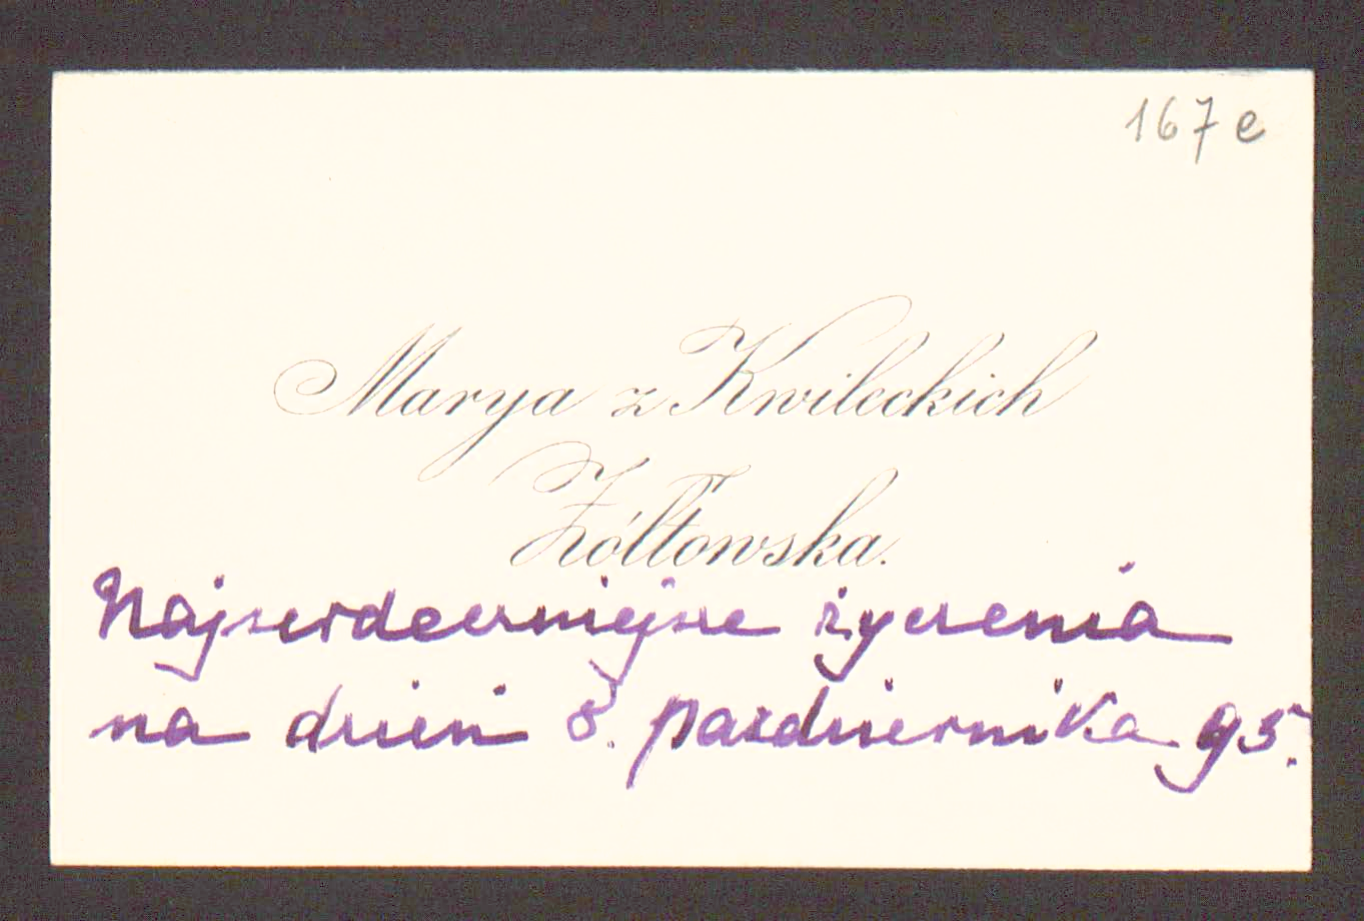 167 e
Marya z Kwileckich
Żółtowska.
Najserdeczniejsze życzenia
na dzień 8. pazdziernika 95.